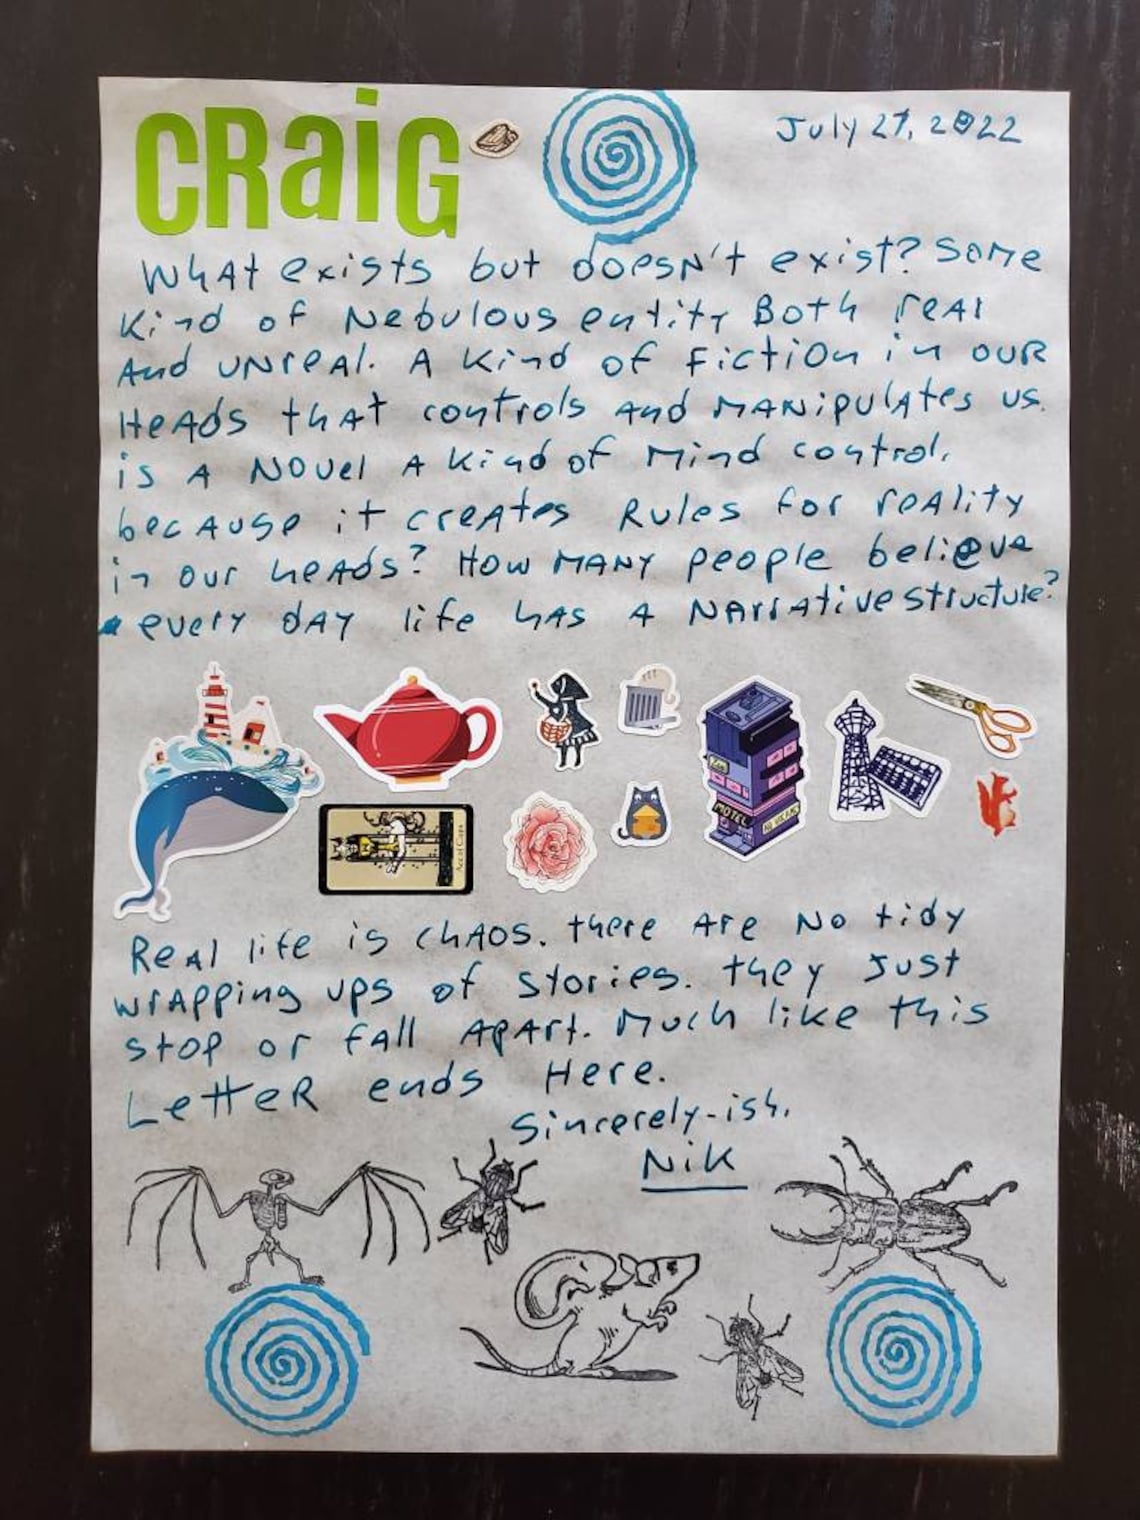 CRaiG
July 27, 2022
What exists but doesn't exist? Some
Kind of Nebulous entity Both real
And unreal. A Kind of Fiction in our
Heads that controls and manipulates us.
is A Novel A Kind of Mind control,
because it creates Rules for reality
in our heads? How many people believe
every day life has A Narrative structure?
MOTEL
Ace of Cups
Real life is chaos. there Are No tidy
wrapping ups of stories. they just
stop or fall Apart. Much like this
Letter ends Here.
Sincerely-ish,
Nik